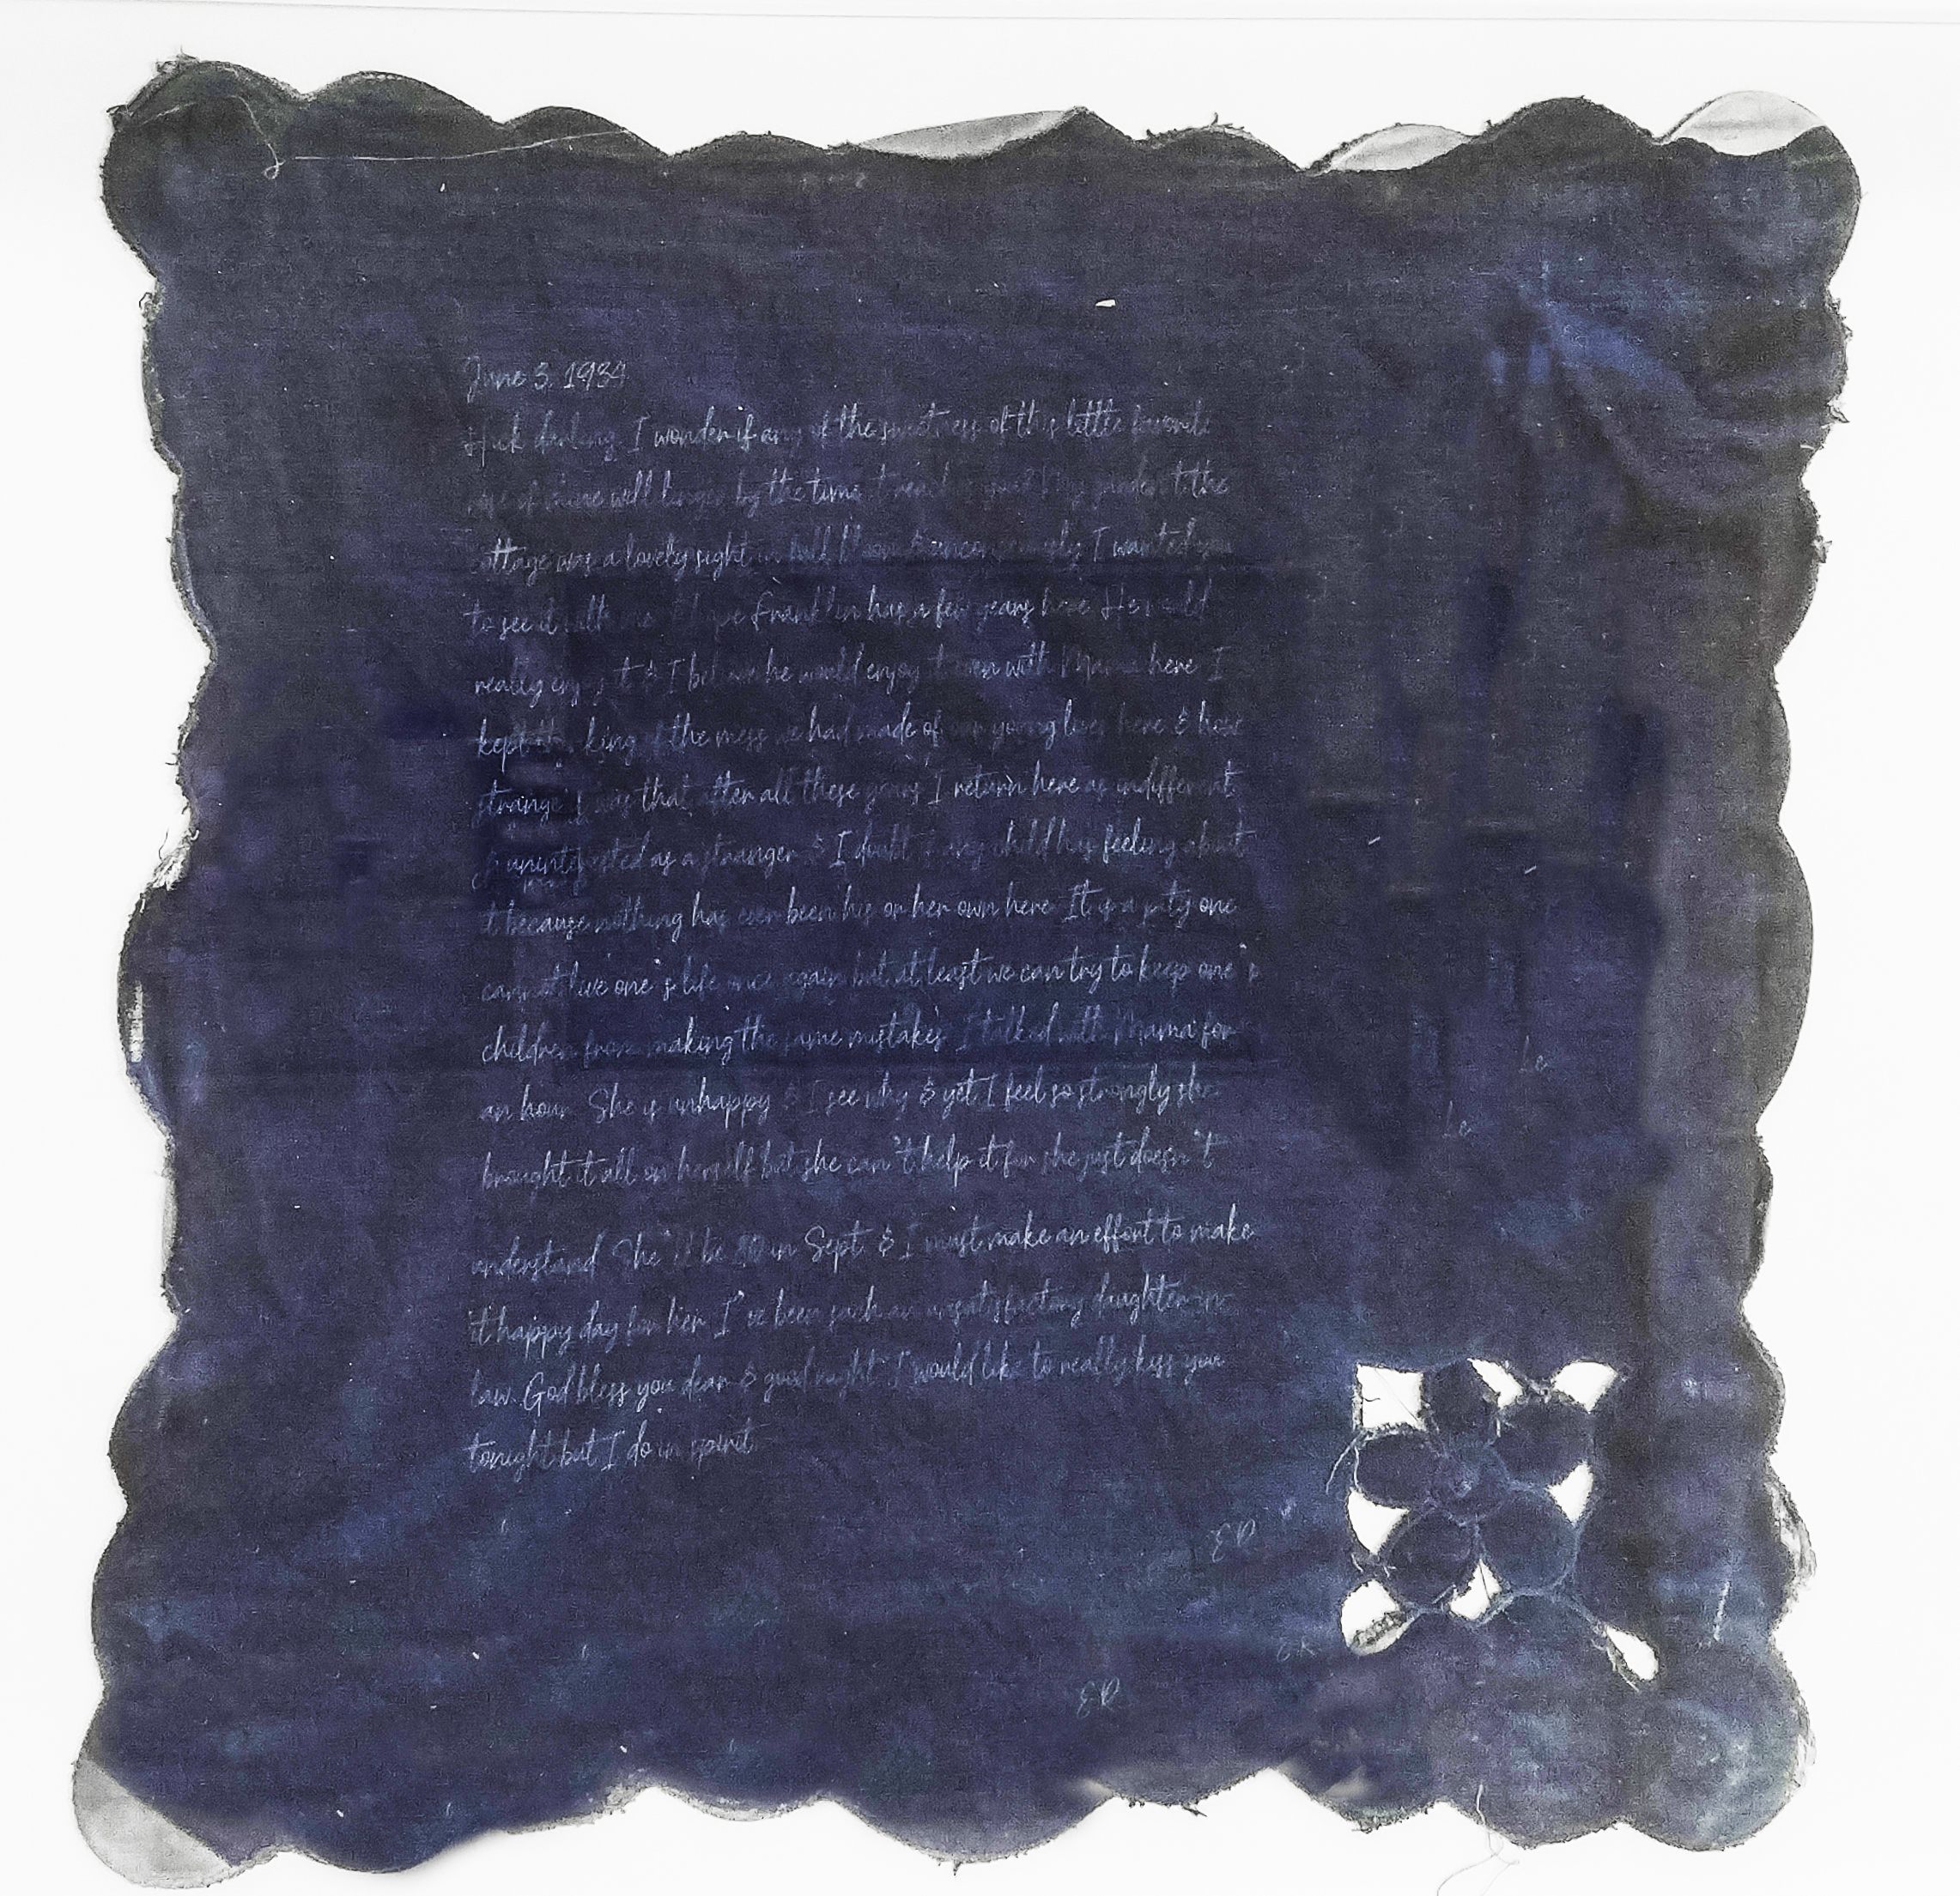 June 3, 1934
Hick darling, I wonder if any of the sweetness of this little favorite
one of mine will linger by the time it reaches you? My garden at the
cottage was a lovely sight in full bloom & unconsciously I wanted you
to see it with me. I hope Franklin has a few years here. He would
really enjoy it & I believe he would enjoy it even with Mama here. I
kept thinking of the mess we had made of our young lives here & how
strange it was that after all these years I return here as indifferent
& uninterested as a stranger & I doubt if any child has feeling about
it because nothing has ever been his or her own here. It is a pity one
cannot live one's life once again but at least we can try to keep one's
children from making the same mistakes. I talked with Mama for
an hour. She is unhappy & I see why & yet I feel so strongly she
brought it all on herself but she can't help it for she just doesn't
understand. She'll be 80 in Sept. & I must make an effort to make
it happy day for her. I've been such an unsatisfactory daughter-in-
law. God bless you dear & good night. I would like to really kiss you
tonight but I do in spirit.
Le
Le
ER
ER
ER